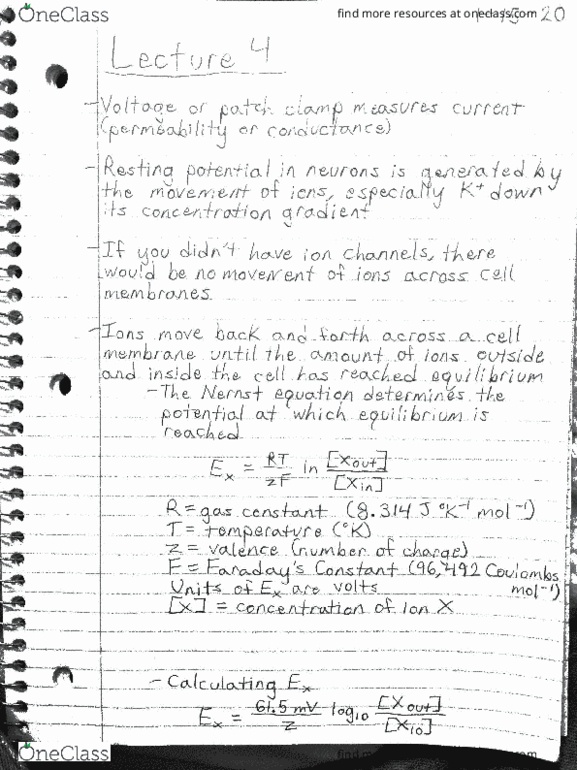 OneClass
find more resources at oneclass.com
20
Lecture 4
- Voltage or patch clamp measures current
(permeability or conductance)
- Resting potential in neurons is generated by
the movement of ions, especially K⁺ down
its concentration gradient
- If you didn't have ion channels, there
would be no movement of ions across cell
membranes.
- Ions move back and forth across a cell
membrane until the amount of ions outside
and inside the cell has reached equilibrium
- The Nernst equation determines the
potential at which equilibrium is
reached
Eₓ = RT/zF ln [Xout]/[Xin]
R = gas constant (8.314 J °K⁻¹ mol⁻¹)
T = temperature (°K)
z = valence (number of charge)
F = Faraday's Constant (96,492 Coulombs
mol⁻¹)
Units of Eₓ are volts
[X] = concentration of ion X
- Calculating Eₓ
Eₓ = 61.5 mV/z log₁₀ [Xout]/[Xin]
OneClass